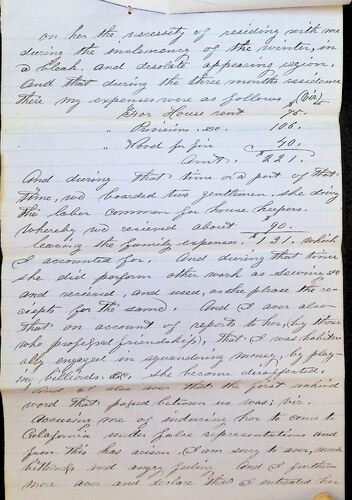 on her the necessity of residing with me
during the inclemency of the winter, in
a bleak and desolate appearing region.
And that during the three months residence
there my expenses were as follows (Viz)
For House rent $75.
" Provisions &c. 106.
" Wood for fire 40.
Amt. $221.
And during that time or a part of that
time, we boarded two gentlemen, she doing
the labor common for house keepers.
Whereby we recieved about $90.
leaving the family expenses $131. which
I accounted for. And during that time
she did perform other work as sewing &c
and recieved, and used, as she please the re-
ceipts for the same. And I aver also
that on account of reports to her, by those
who professed friendship, that I was habitu-
ally engaged in squandering money, by play-
ing billiards &c, she become dissatisfied.
And I also aver that the first unkind
word that passed between us was; viz.
Accusing me of inducing her to come to
Calafornia under false representations and
from this has arisen, I am sorry to aver, much
bitterness and angry feeling. And I further-
more aver and declare that I entreated her